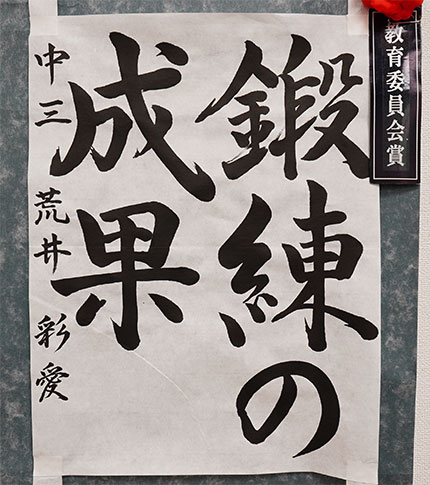 教育委員会賞
鍛練の
成果
中三 荒井 彩愛